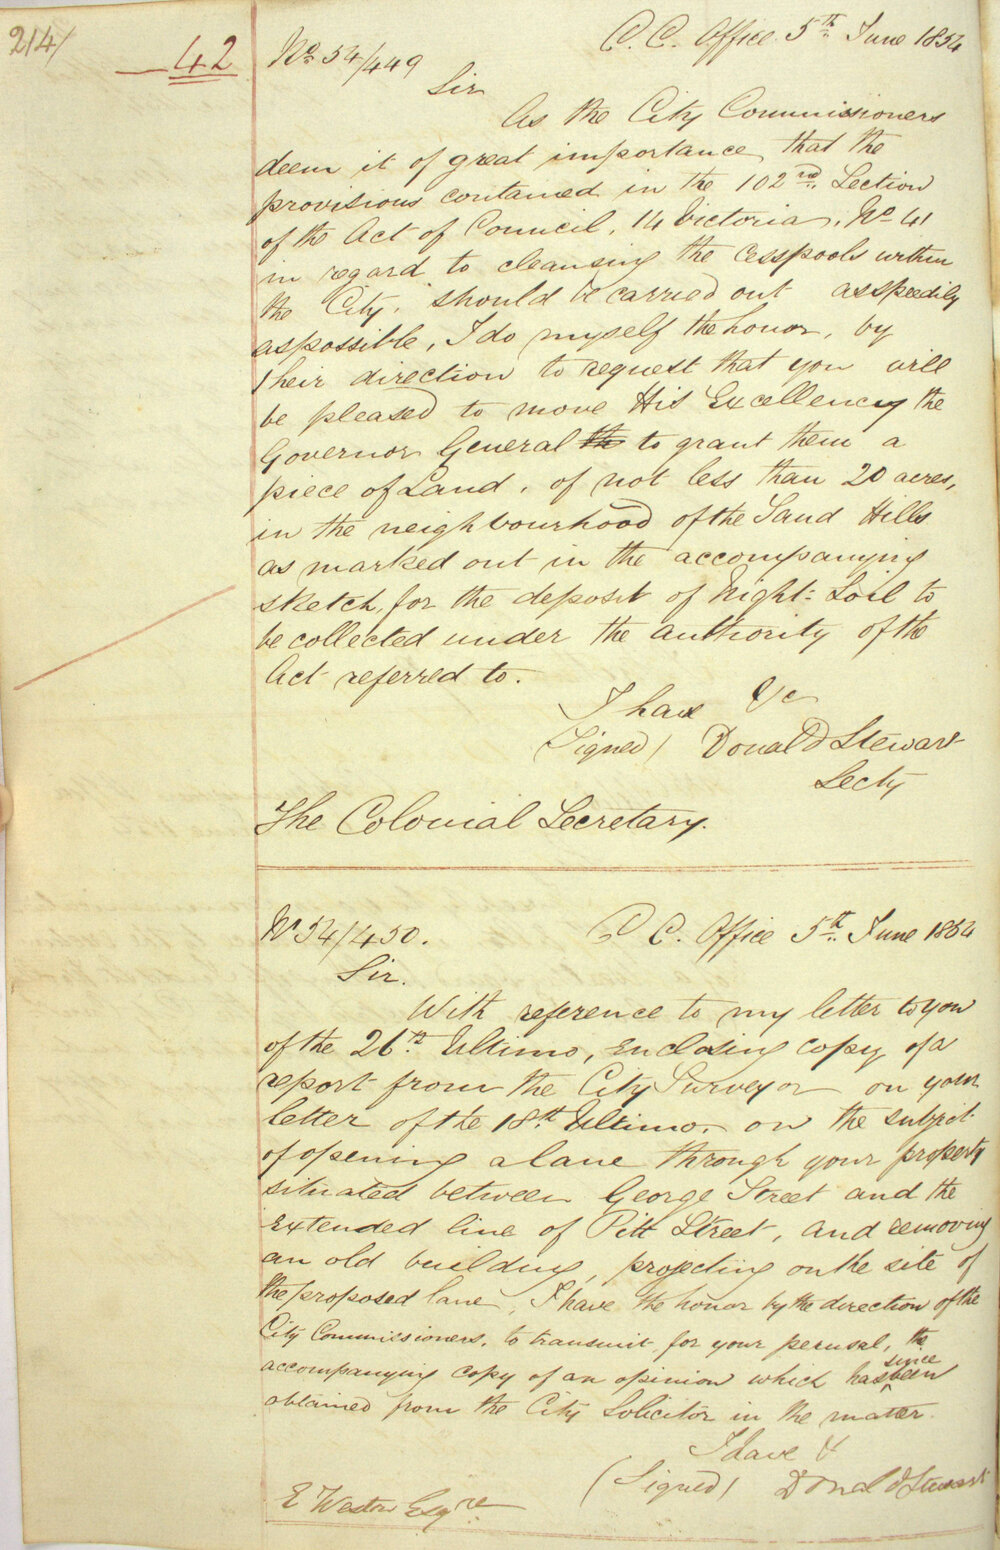 214/
42
No 54/449
C. C. Office 5th June 1854
Sir
As the City Commissioners
deem it of great importance that the
provisions contained in the 102nd Section
of the Act of Council, 14 Victoria, No 41
in regard to cleansing the Cesspools within
the City, should be carried out as speedily
as possible, I do myself the honor, by
their direction to request that you will
be pleased to move His Excellency the
Governor General th to grant them a
piece of Land, of not less than 20 acres,
in the neighbourhood of the Sand Hills
as marked out in the accompanying
sketch, for the deposit of Night-Soil to
be collected under the authority of the
Act referred to.
I have &c
(Signed) Donald Stewart
Secty
The Colonial Secretary.
No 54/450.
C C. Office 5th June 1854
Sir.
With reference to my letter to you
of the 26th Ultimo, enclosing copy of a
report from the City Surveyor on your
letter of the 18th Ultimo, on the subject
of opening a lane through your property
situated between George Street and the
extended line of Pitt Street, and removing
an old building, projecting on the site of
the proposed lane, I have the honor by the direction of the
City Commissioners, to transmit for your perusal, the
accompanying copy of an opinion which has since been
obtained from the City Solicitor in the matter.
I have &
(Signed) Donald Stewart
E Weston Esqre